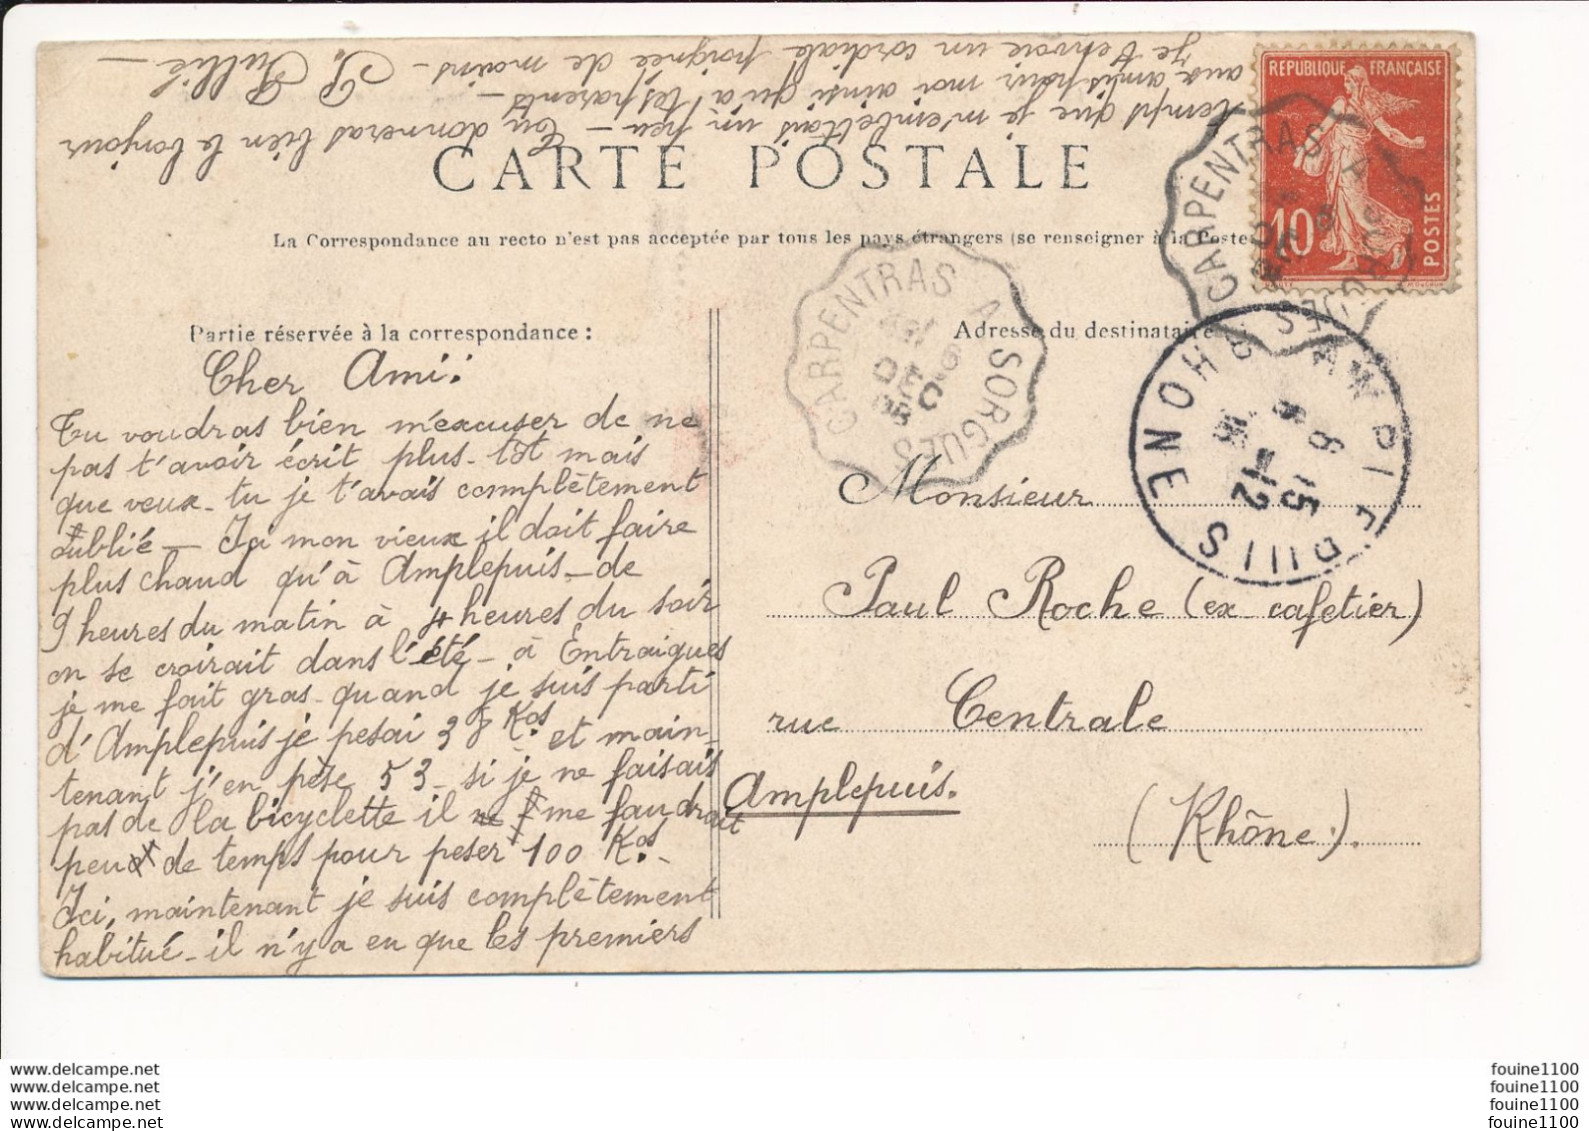 CARTE POSTALE
La Correspondance au recto n'est pas acceptée par tous les pays étrangers (se renseigner à la Poste
Partie réservée à la correspondance :
Adresse du destinataire
Cher Ami :
Tu voudras bien m'excuser de ne
pas t'avoir écrit plus-tôt mais
que veux-tu je t'avais complètement
oublié — Ja mon vieux il doit faire
plus chaud qu'à Amplepuis - de
9 heures du matin à 4 heures du soir
on se croirait dans l'été - à Entraigues
je me fait gras - quand je suis parti
d'Amplepuis je pesai 38 Kos et main-
tenant j'en pèse 53 - si je ne faisais
pas de la bicyclette il me faudrait
peu de temps pour peser 100 Kos. -
Ici, maintenant je suis complètement
habitué - il n'y a eu que les premiers
temps que je m'embettais un peu - Tu donneras bien le bonjour
aux amis pour moi ainsi qu'à tes parents -
Je t'envoie un cordiale poignée de mains - P. Jullié -
Monsieur
Paul Roche (ex cafetier)
rue Centrale
Amplepuis.
(Rhône).
REPUBLIQUE FRANÇAISE
10
POSTES
CARPENTRAS A SORGUES
CARPENTRAS A SORGUES
RHONE
www.delcampe.net
www.delcampe.net
www.delcampe.net
www.delcampe.net
fouine1100
fouine1100
fouine1100
fouine1100